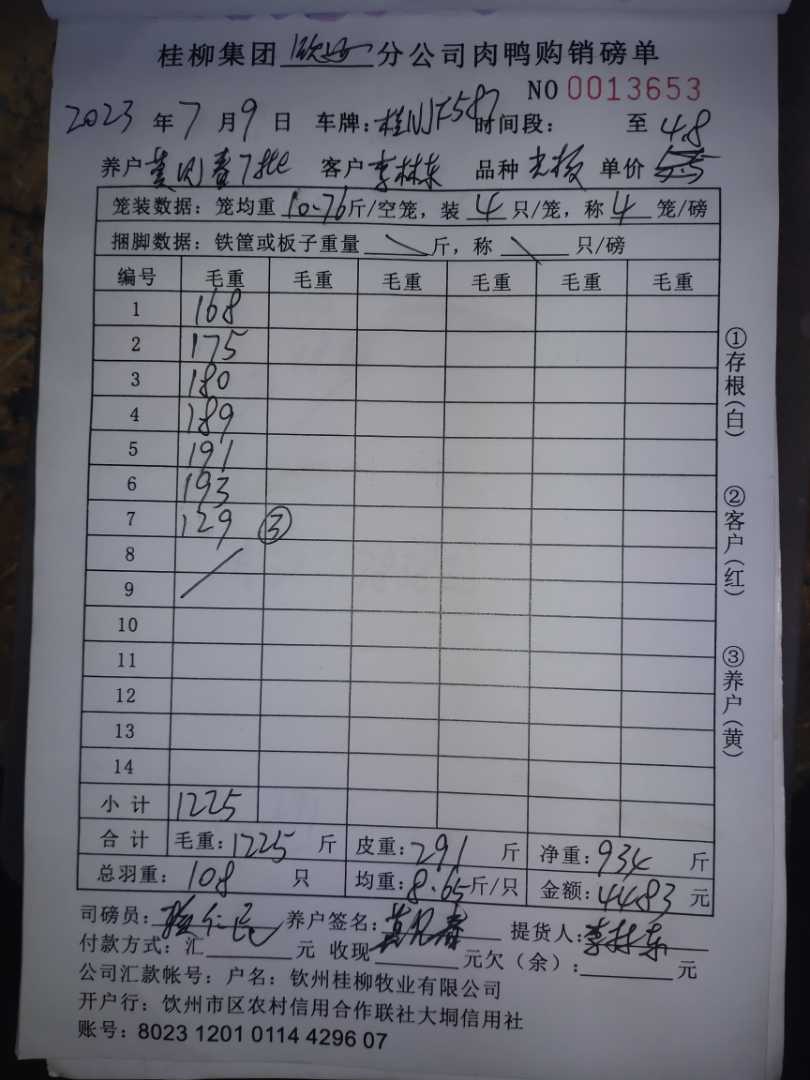 桂柳集团 钦州 分公司肉鸭购销磅单
NO 0013653
2023 年 7 月 9 日 车牌: 桂NJF587 时间段: 至 4.8
养户 黄 春7批 客户 李林东 品种 单价
笼装数据: 笼均重 10.76 斤/空笼, 装 4 只/笼, 称 4 笼/磅
捆脚数据: 铁筐或板子重量 \ 斤, 称 \ 只/磅
编号 毛重 毛重 毛重 毛重 毛重 毛重
1 168
2 175
3 180
4 189
5 191
6 193
7 129 ③
8
9
10
11
12
13
14
小计 1225
合计 毛重: 1225 斤 皮重: 291 斤 净重: 934 斤
总羽重: 108 只 均重: 8.65 斤/只 金额: 4483 元
司磅员: 养户签名: 黄 春 提货人: 李林东
付款方式: 汇 元 收现 元欠(余): 元
公司汇款帐号: 户名: 钦州桂柳牧业有限公司
开户行: 钦州市区农村信用合作联社大垌信用社
账号: 8023 1201 0114 4296 07
①存根(白)
②客户(红)
③养户(黄)